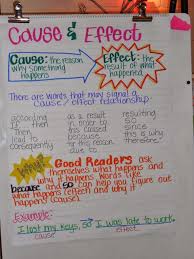 Cause & Effect
Cause: the reason why something happens
Effect: the result of what happened
There are words that may signal a
cause/effect relationship:
according as a result resulting
if... then in order to so
then this caused since
lead to because thus
consequently due to therefore
for this reason
Good Readers ask
themselves what happens and
why it happens. Words like
because and so can help you figure out
what happens (effect) and why it
happens (cause).
Example:
I lost my keys, so I was late to work.
cause effect